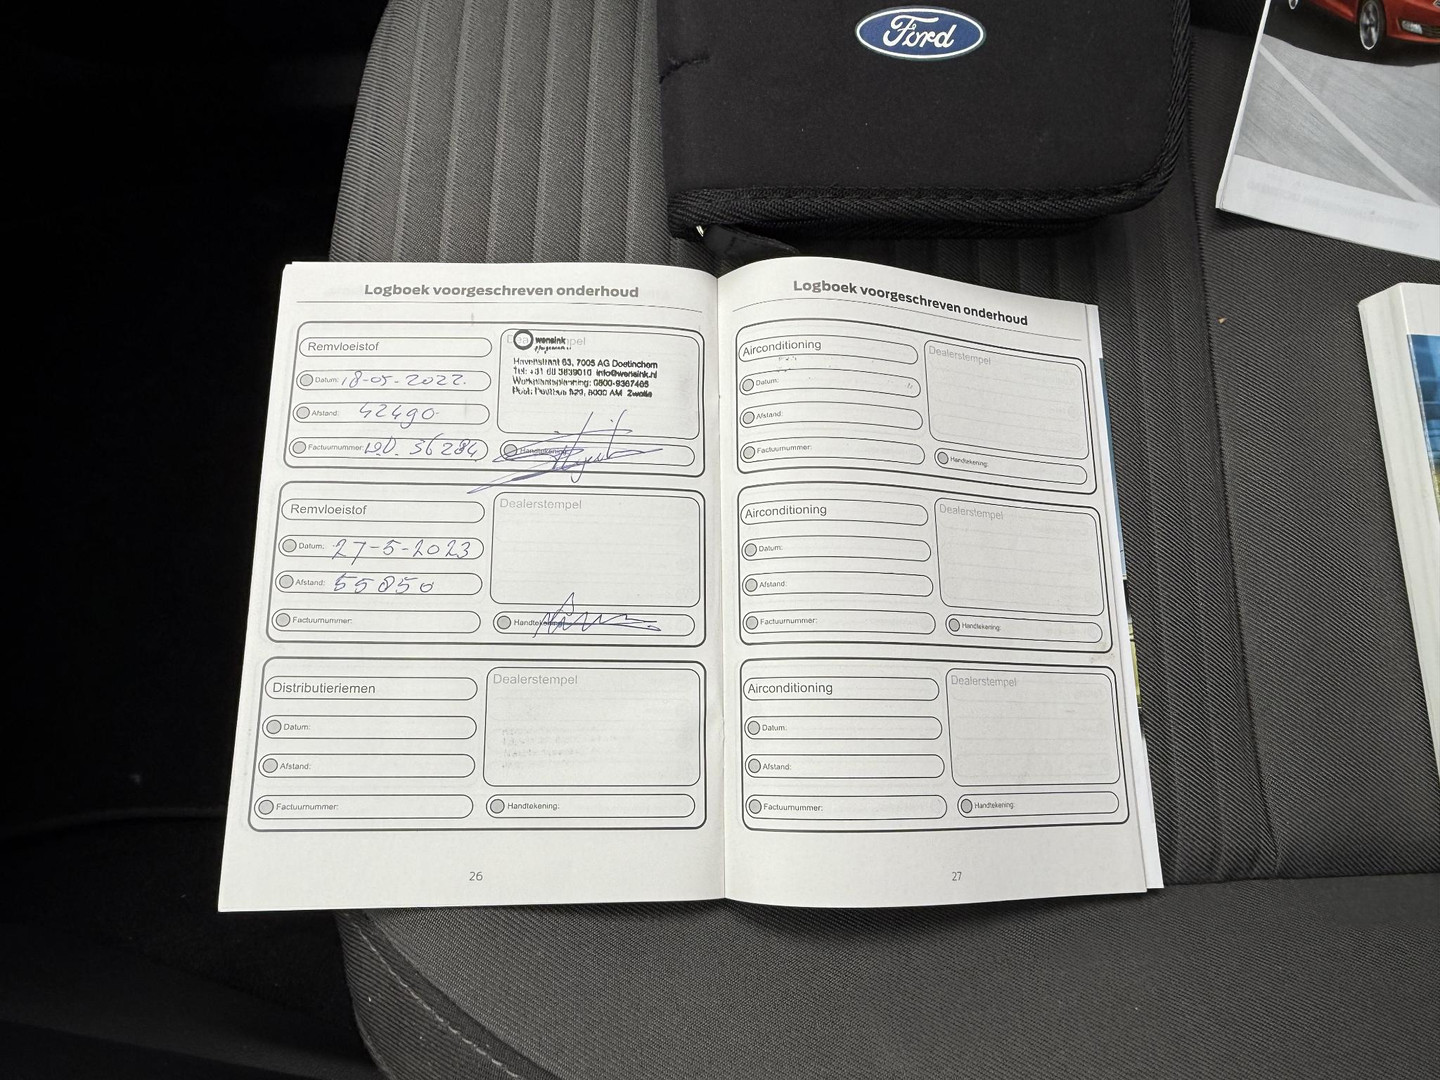 Ford
Logboek voorgeschreven onderhoud
Remvloeistof
Datum: 18-05-2022.
Afstand: 42490
Factuurnummer: 36284
Dealerstempel
wensink
63, 7005 AG Doetinchem
info@wensink.nl
0800-9367465
8000 AM Zwolle
Handtekening:
Remvloeistof
Datum: 27-5-2023
Afstand: 55850
Factuurnummer:
Dealerstempel
Handtekening:
Distributieriemen
Datum:
Afstand:
Factuurnummer:
Dealerstempel
Handtekening:
26
Logboek voorgeschreven onderhoud
Airconditioning
Datum:
Afstand:
Factuurnummer:
Dealerstempel
Handtekening:
Airconditioning
Datum:
Afstand:
Factuurnummer:
Dealerstempel
Handtekening:
Airconditioning
Datum:
Afstand:
Factuurnummer:
Dealerstempel
Handtekening:
27